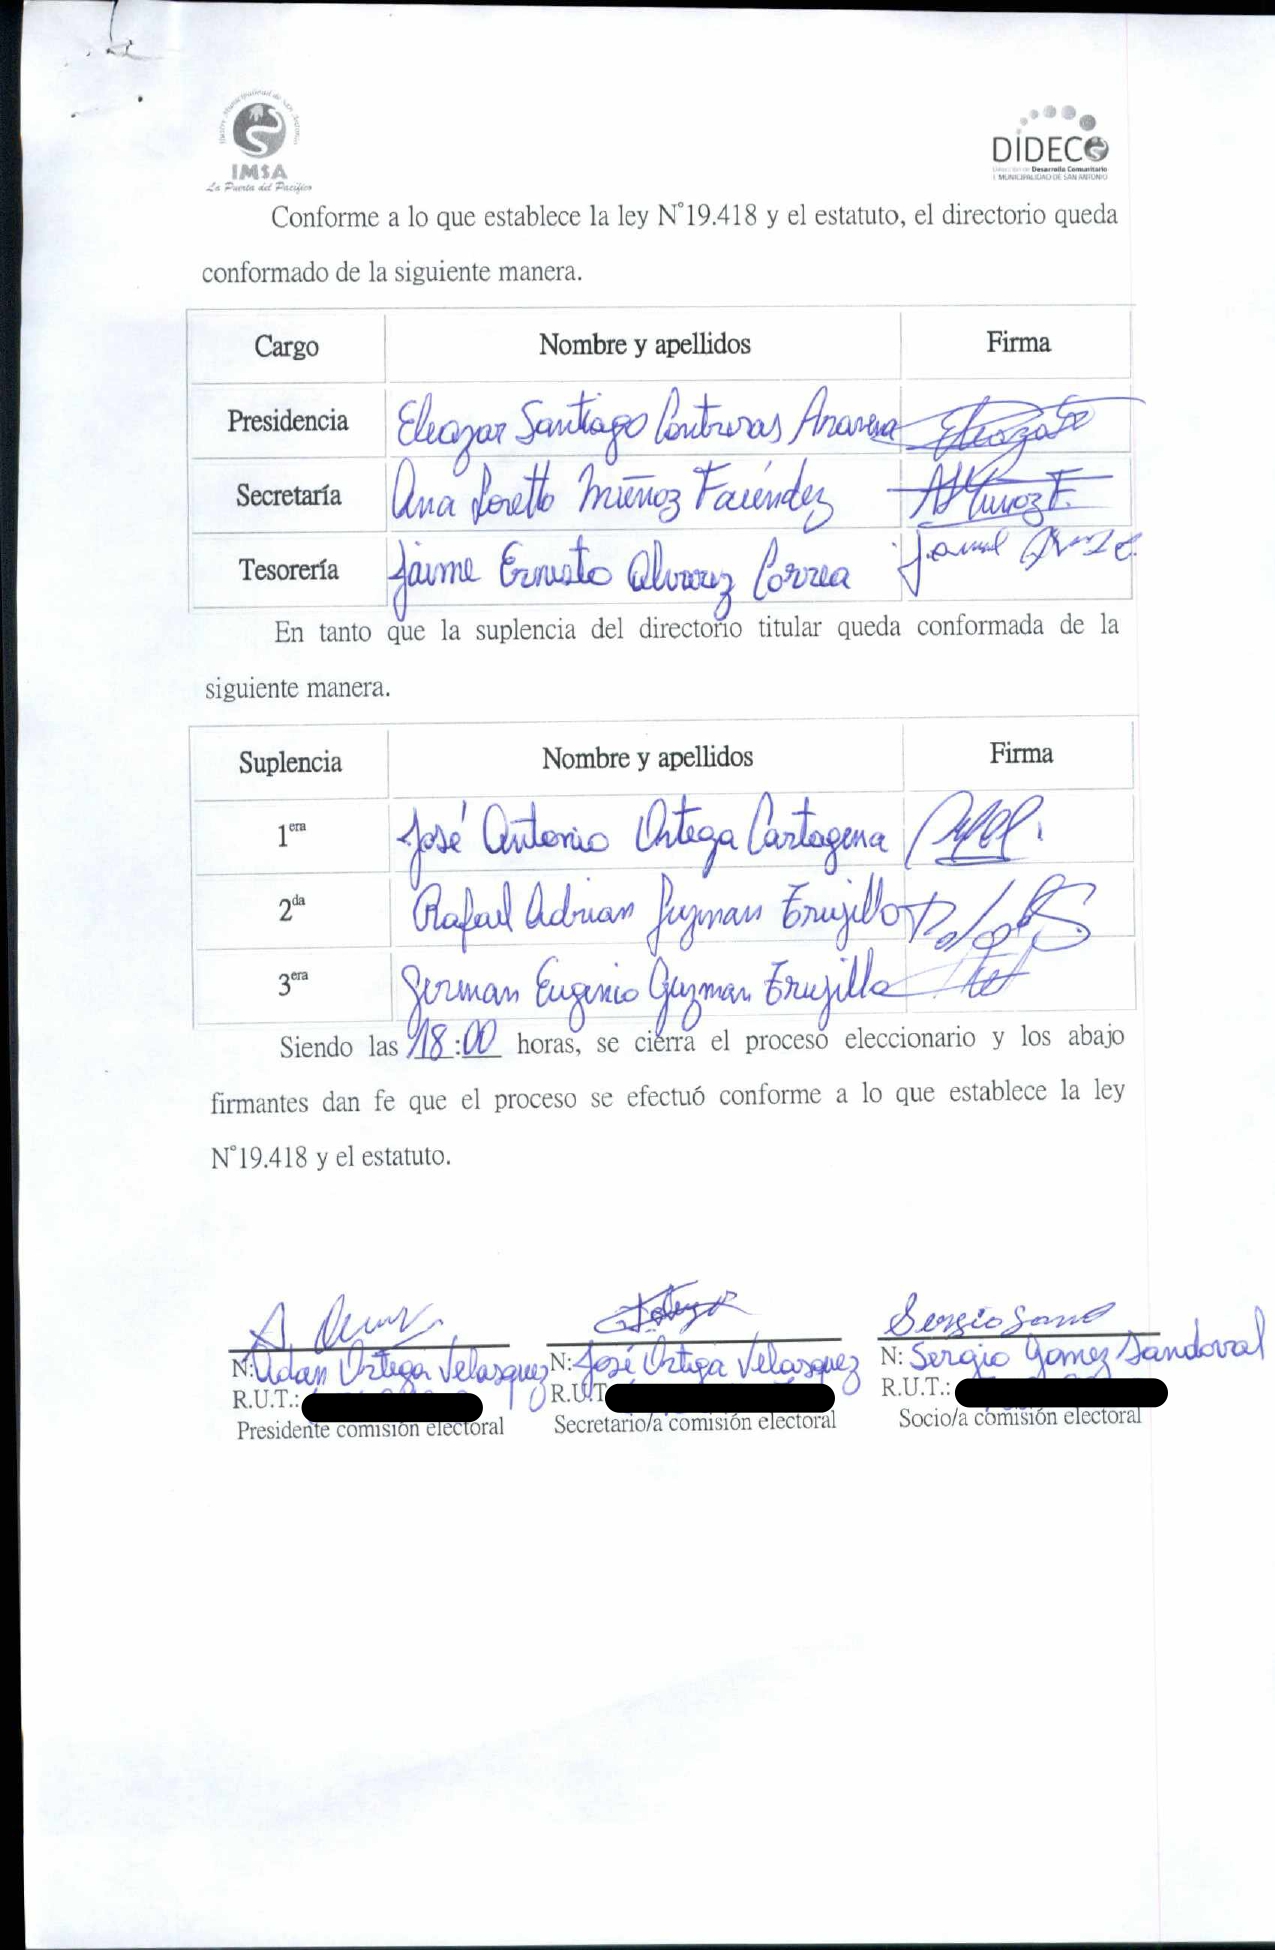 Ilustre Municipalidad de San Antonio
IMSA
La Puerta del Pacífico
DIDECO
Dirección de Desarrollo Comunitario
I. MUNICIPALIDAD DE SAN ANTONIO
Conforme a lo que establece la ley N°19.418 y el estatuto, el directorio queda
conformado de la siguiente manera.
Cargo Nombre y apellidos Firma
Presidencia Eleazar Santiago Contreras Aravena
Secretaría Ana Loretto Muñoz Faúndez
Tesorería Jaime Ernesto Alvarez Correa
En tanto que la suplencia del directorio titular queda conformada de la
siguiente manera.
Suplencia Nombre y apellidos Firma
1era José Antonio Ortega Cartagena
2da Rafael Adrian Guzman Trujillo
3era German Eugenio Guzman Trujillo
Siendo las 18:00 horas, se cierra el proceso eleccionario y los abajo
firmantes dan fe que el proceso se efectuó conforme a lo que establece la ley
N°19.418 y el estatuto.
N: Adan Ortega Velasquez N: José Ortega Velasquez N: Sergio Gomez Sandoval
R.U.T.: R.U.T R.U.T.:
Presidente comisión electoral Secretario/a comisión electoral Socio/a comisión electoral